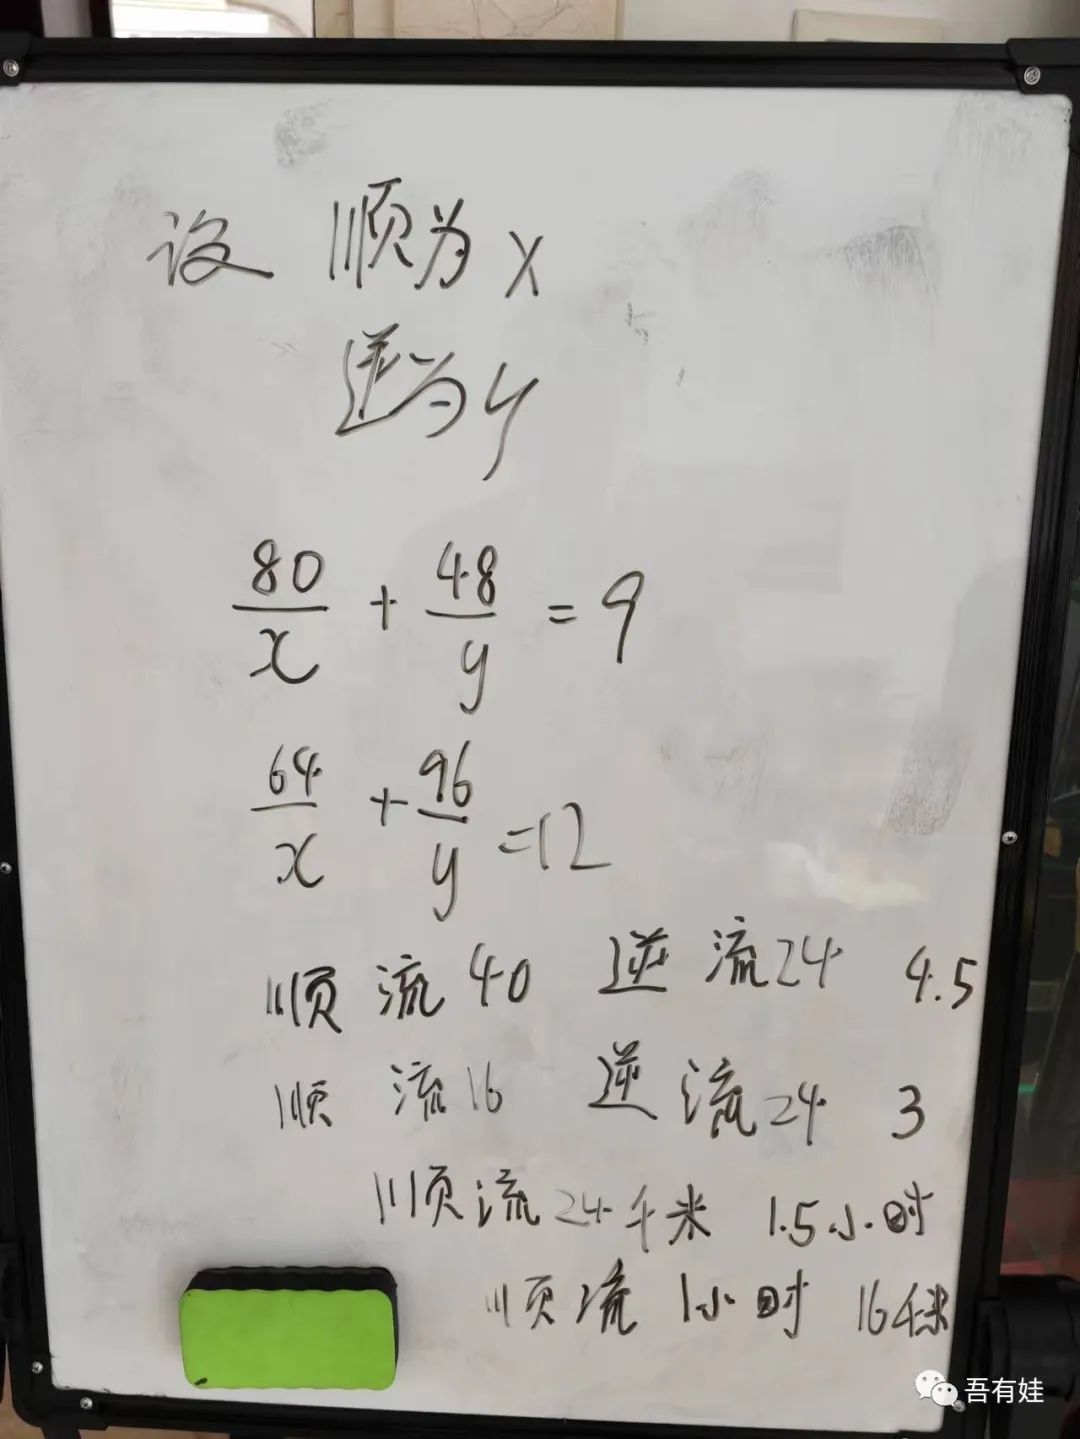 设 顺为 x
逆为 y
80/x + 48/y = 9
64/x + 96/y = 12
顺流40 逆流24 4.5
顺流16 逆流24 3
顺流24千米 1.5小时
顺流 1小时 16千米
吾有娃